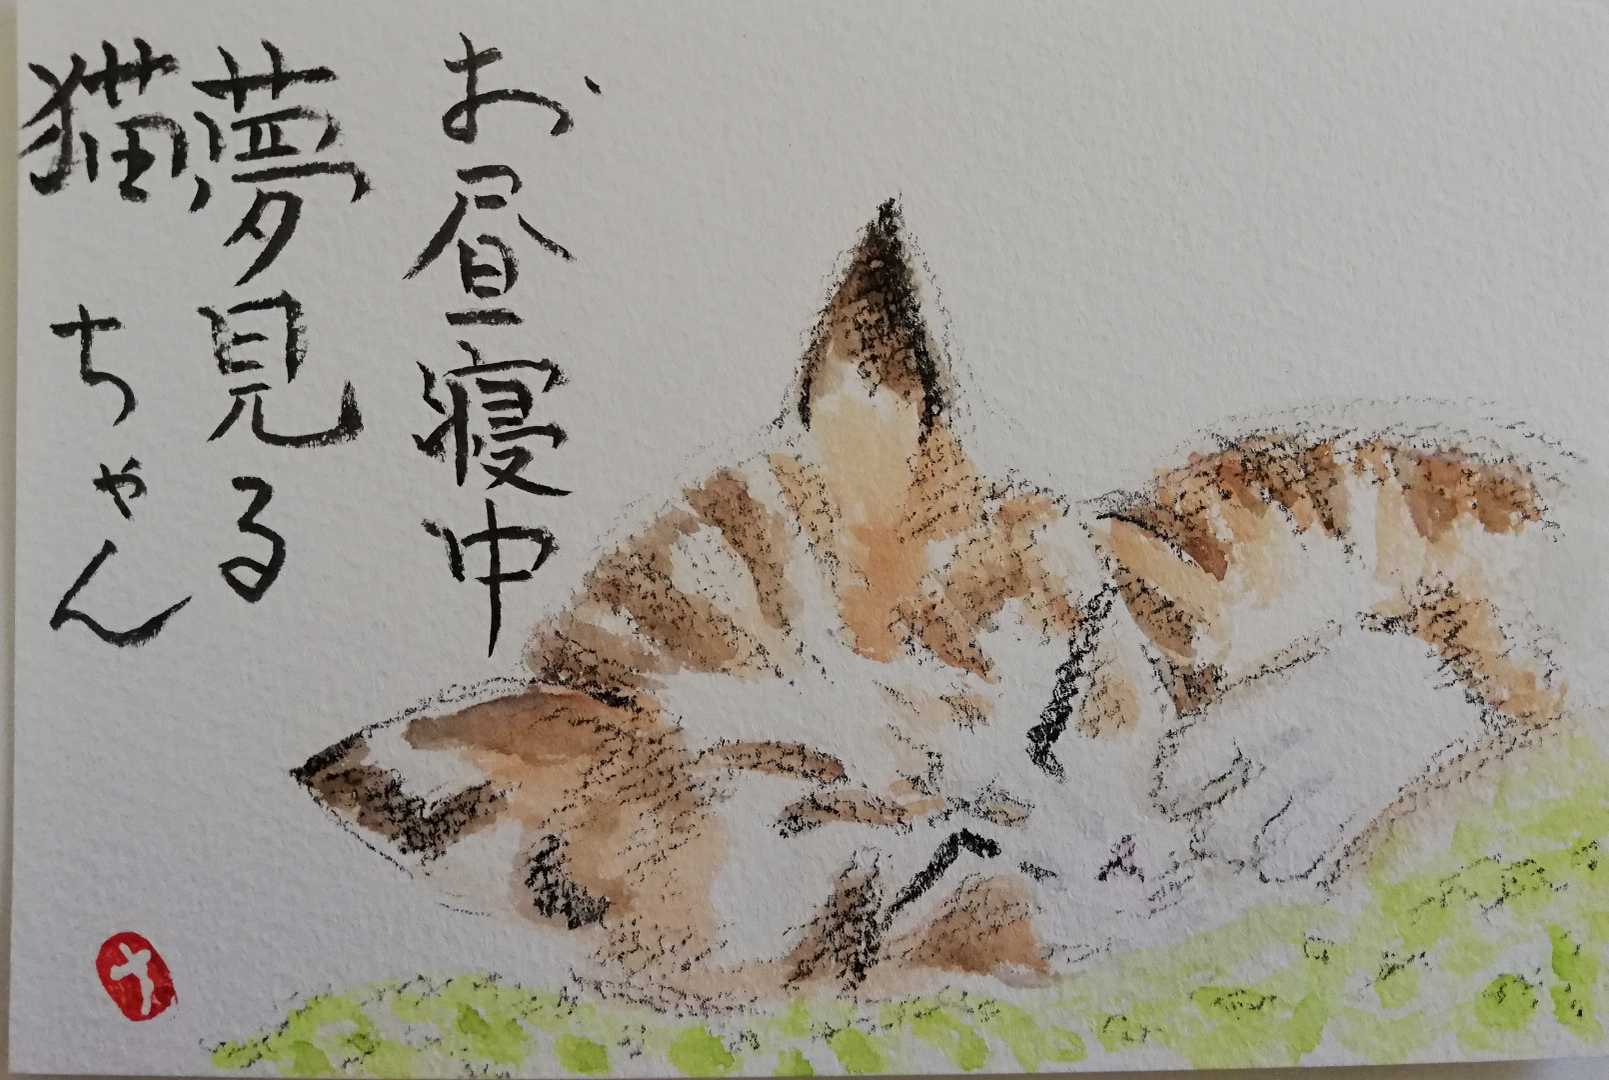 お昼寝中
夢見る
猫ちゃん